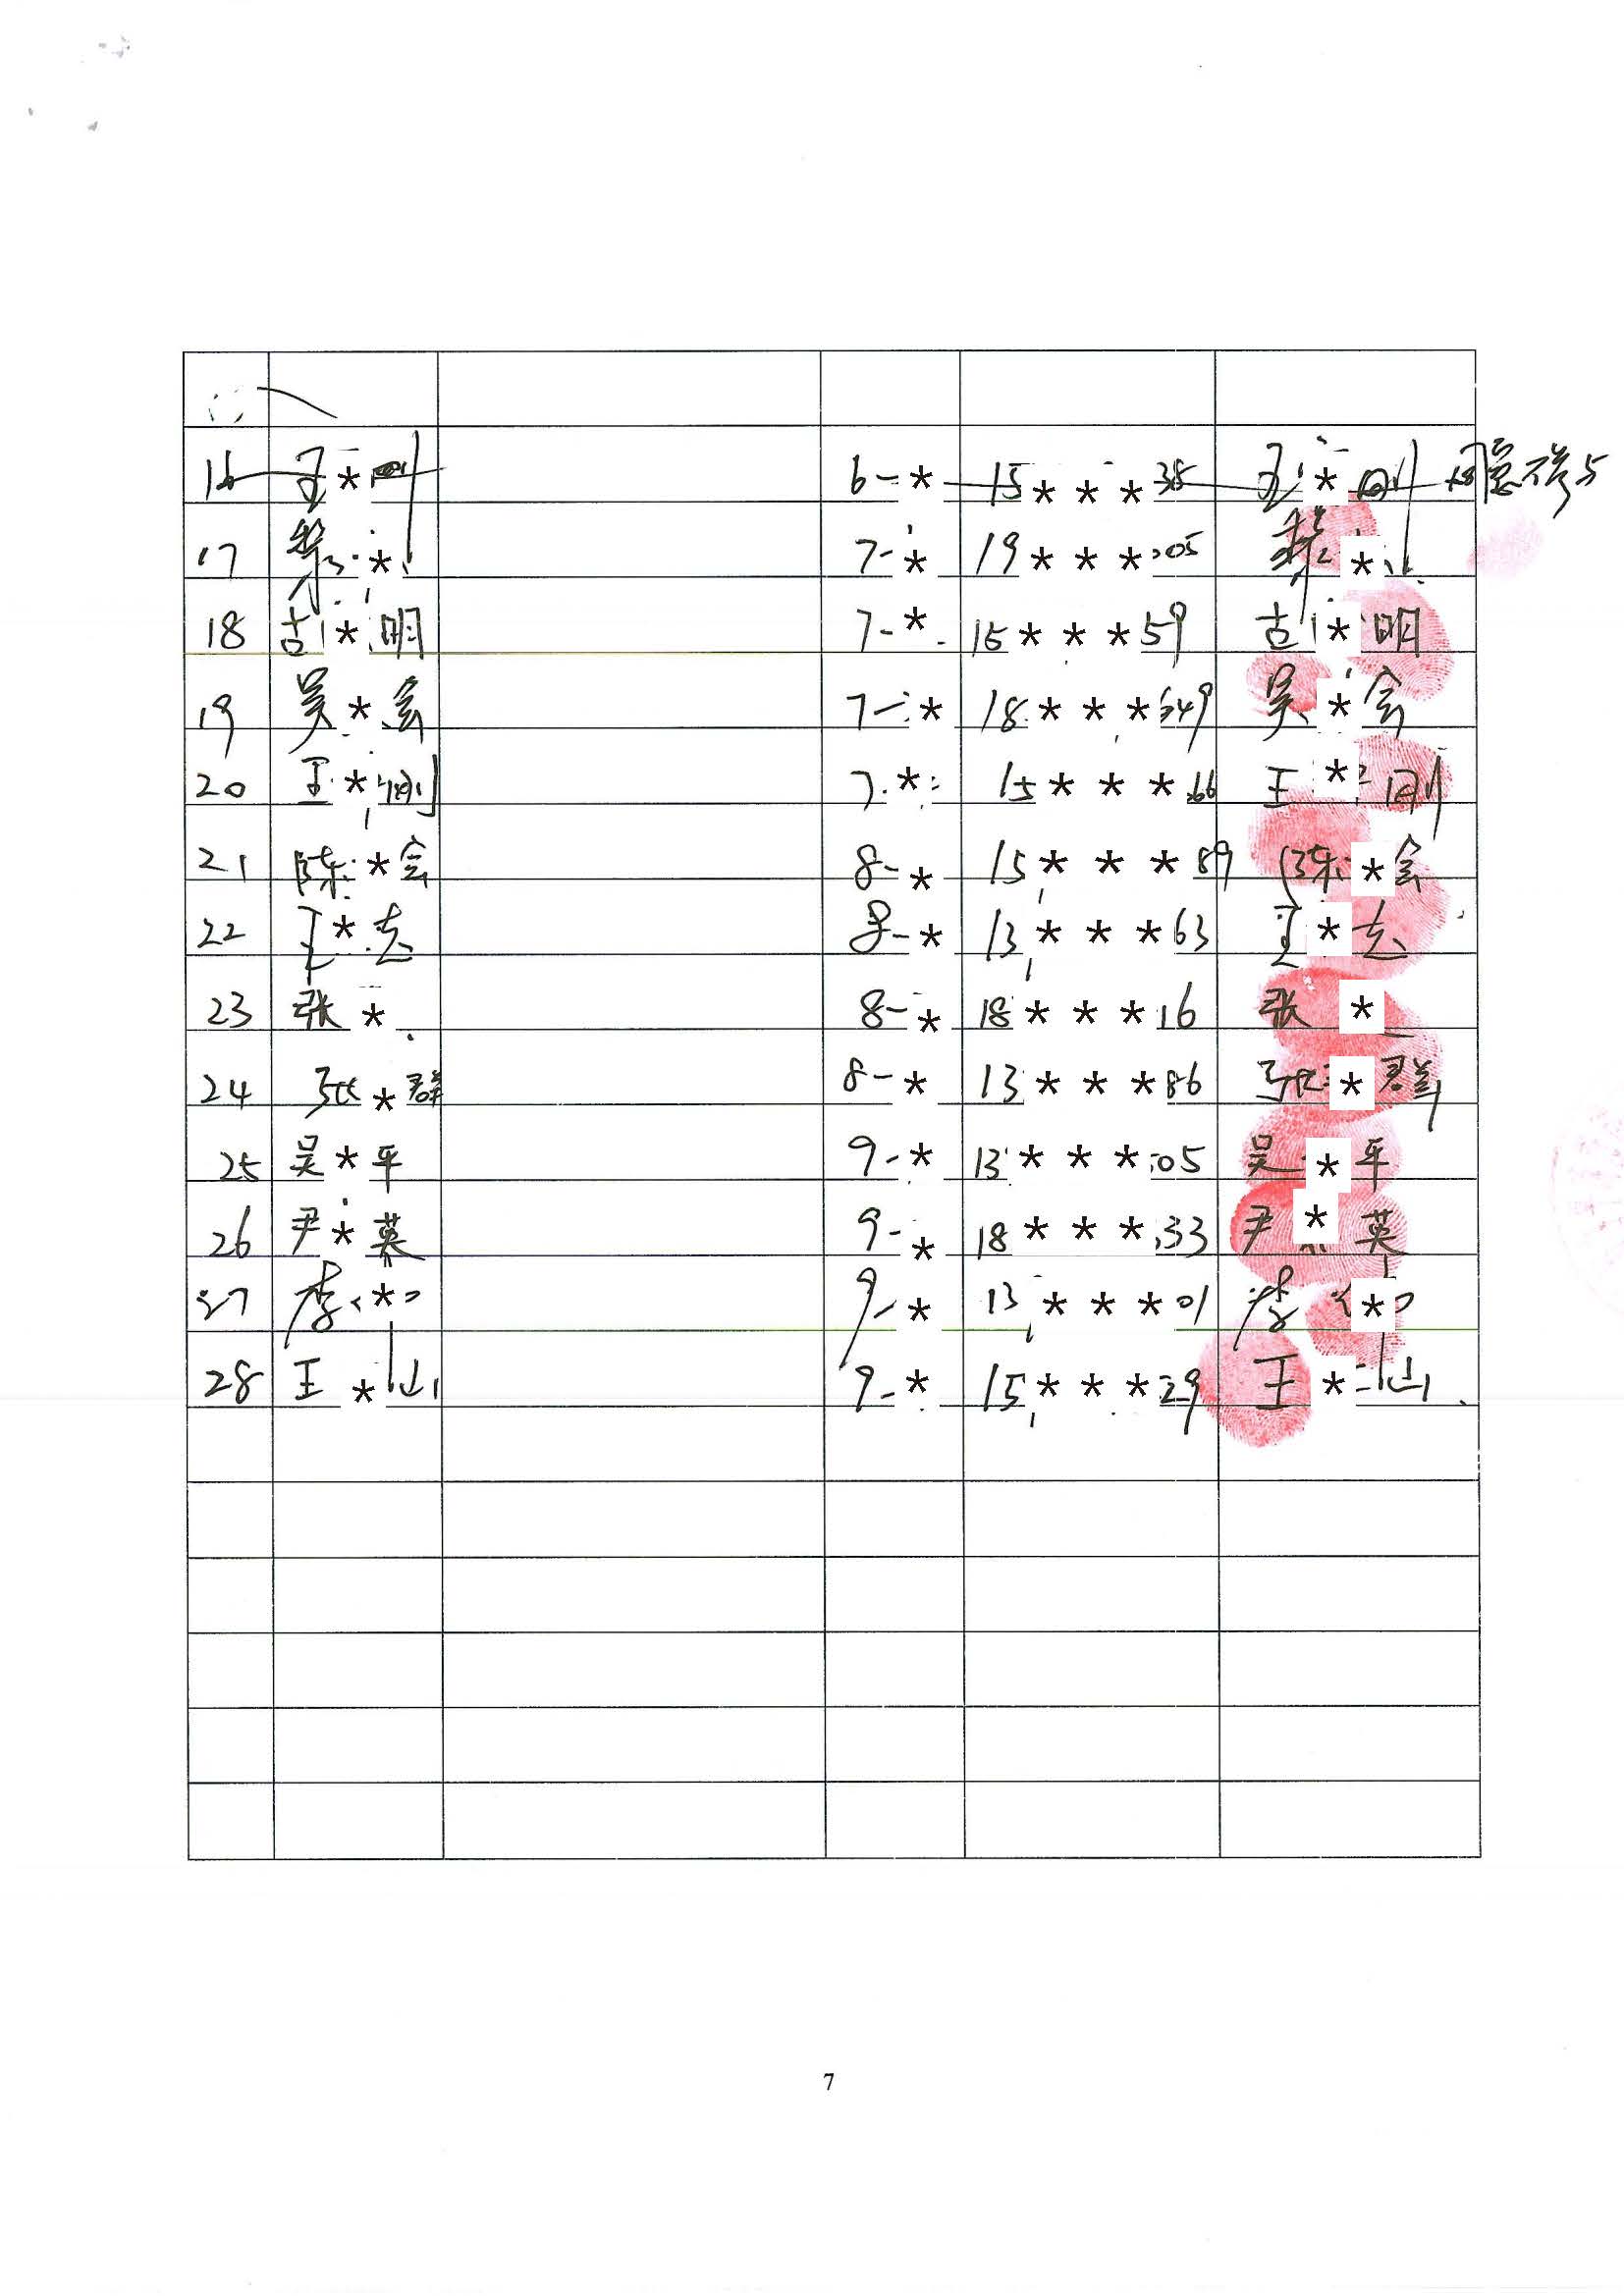 16 王*刚 6-* 15***38 王*刚 同意不参与
17 黎* 7-* 19***05 黎*
18 古*明 7-* 15***59 古*明
19 吴*会 7-* 18***49 吴*会
20 王*刚 7-* 15***66 王*刚
21 陈*会 8-* 15***89 陈*会
22 王*志 8-* 13***63 王*志
23 张* 8-* 18***16 张*
24 张*群 8-* 13***86 张*群
25 吴*平 9-* 13***05 吴*平
26 尹*英 9-* 18***33 尹*英
27 李* 9-* 13***01 李*
28 王*山 9-* 15***29 王*山
7